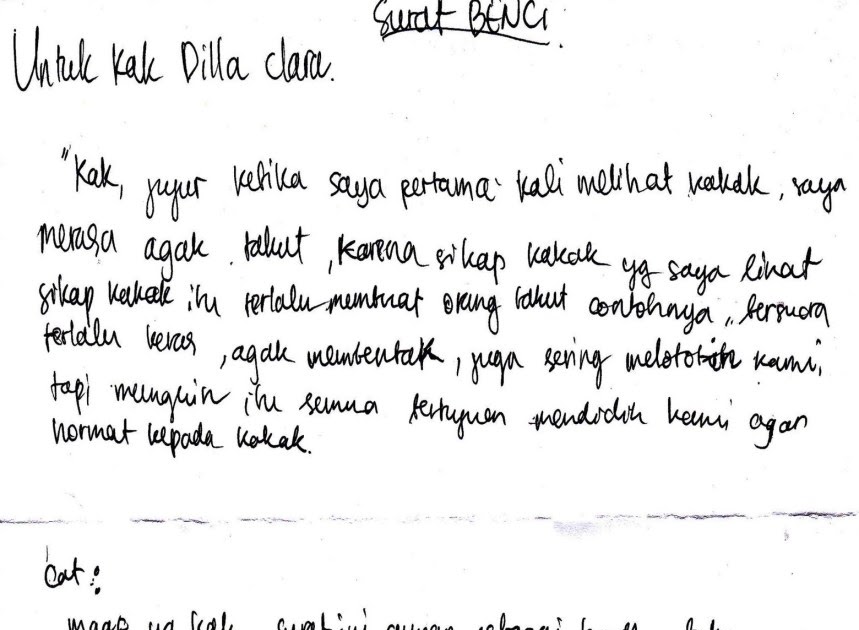 Surat BENCI.
Untuk Kak Dilla Clara.
"Kak, jujur ketika saya pertama kali melihat kakak, saya
merasa agak takut, karena sikap kakak yg saya lihat
sikap kakak itu terlalu membuat orang takut contohnya, bersuara
terlalu keras, agak membentak, juga sering melototin kami,
tapi mungkin itu semua bertujuan mendidik kami agar
hormat kepada kakak.
Cat:
maap ya kak, surat ini sebagai